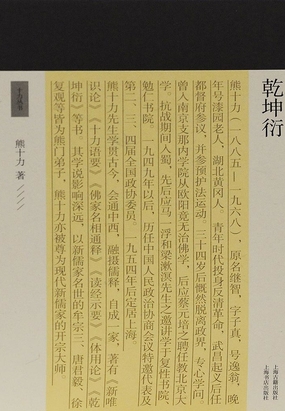 乾坤衍
上海古籍出版社
上海书店出版社
熊十力(一八八五—一九六八),原名继智,字子真,号逸翁,晚
年号漆园老人,湖北黄冈人。青年时代投身反清革命,武昌起义后任
都督府参议,并参预护法运动。三十四岁后慨然脱离政界,专心问学。
曾入南京支那内学院从欧阳竟无治佛学,后应蔡元培之聘任教北京大
学。抗战期间入蜀,先后应马一浮和梁漱溟先生之邀讲学于复性书院、
勉仁书院。一九四九年以后,历任中国人民政治协商会议特邀代表及
第二、三、四届全国政协委员。一九五四年后定居上海。
熊十力先生学贯古今,会通中西,融摄儒释,自成一家,著有《新唯
识论》《十力语要》《佛家名相通释》《读经示要》《体用论》《乾
坤衍》等书,其学说影响深远,以新儒家名世的牟宗三、唐君毅、徐
复观等皆为熊门弟子,熊十力亦被尊为现代新儒家的开宗大师。
十力丛书
熊十力 著